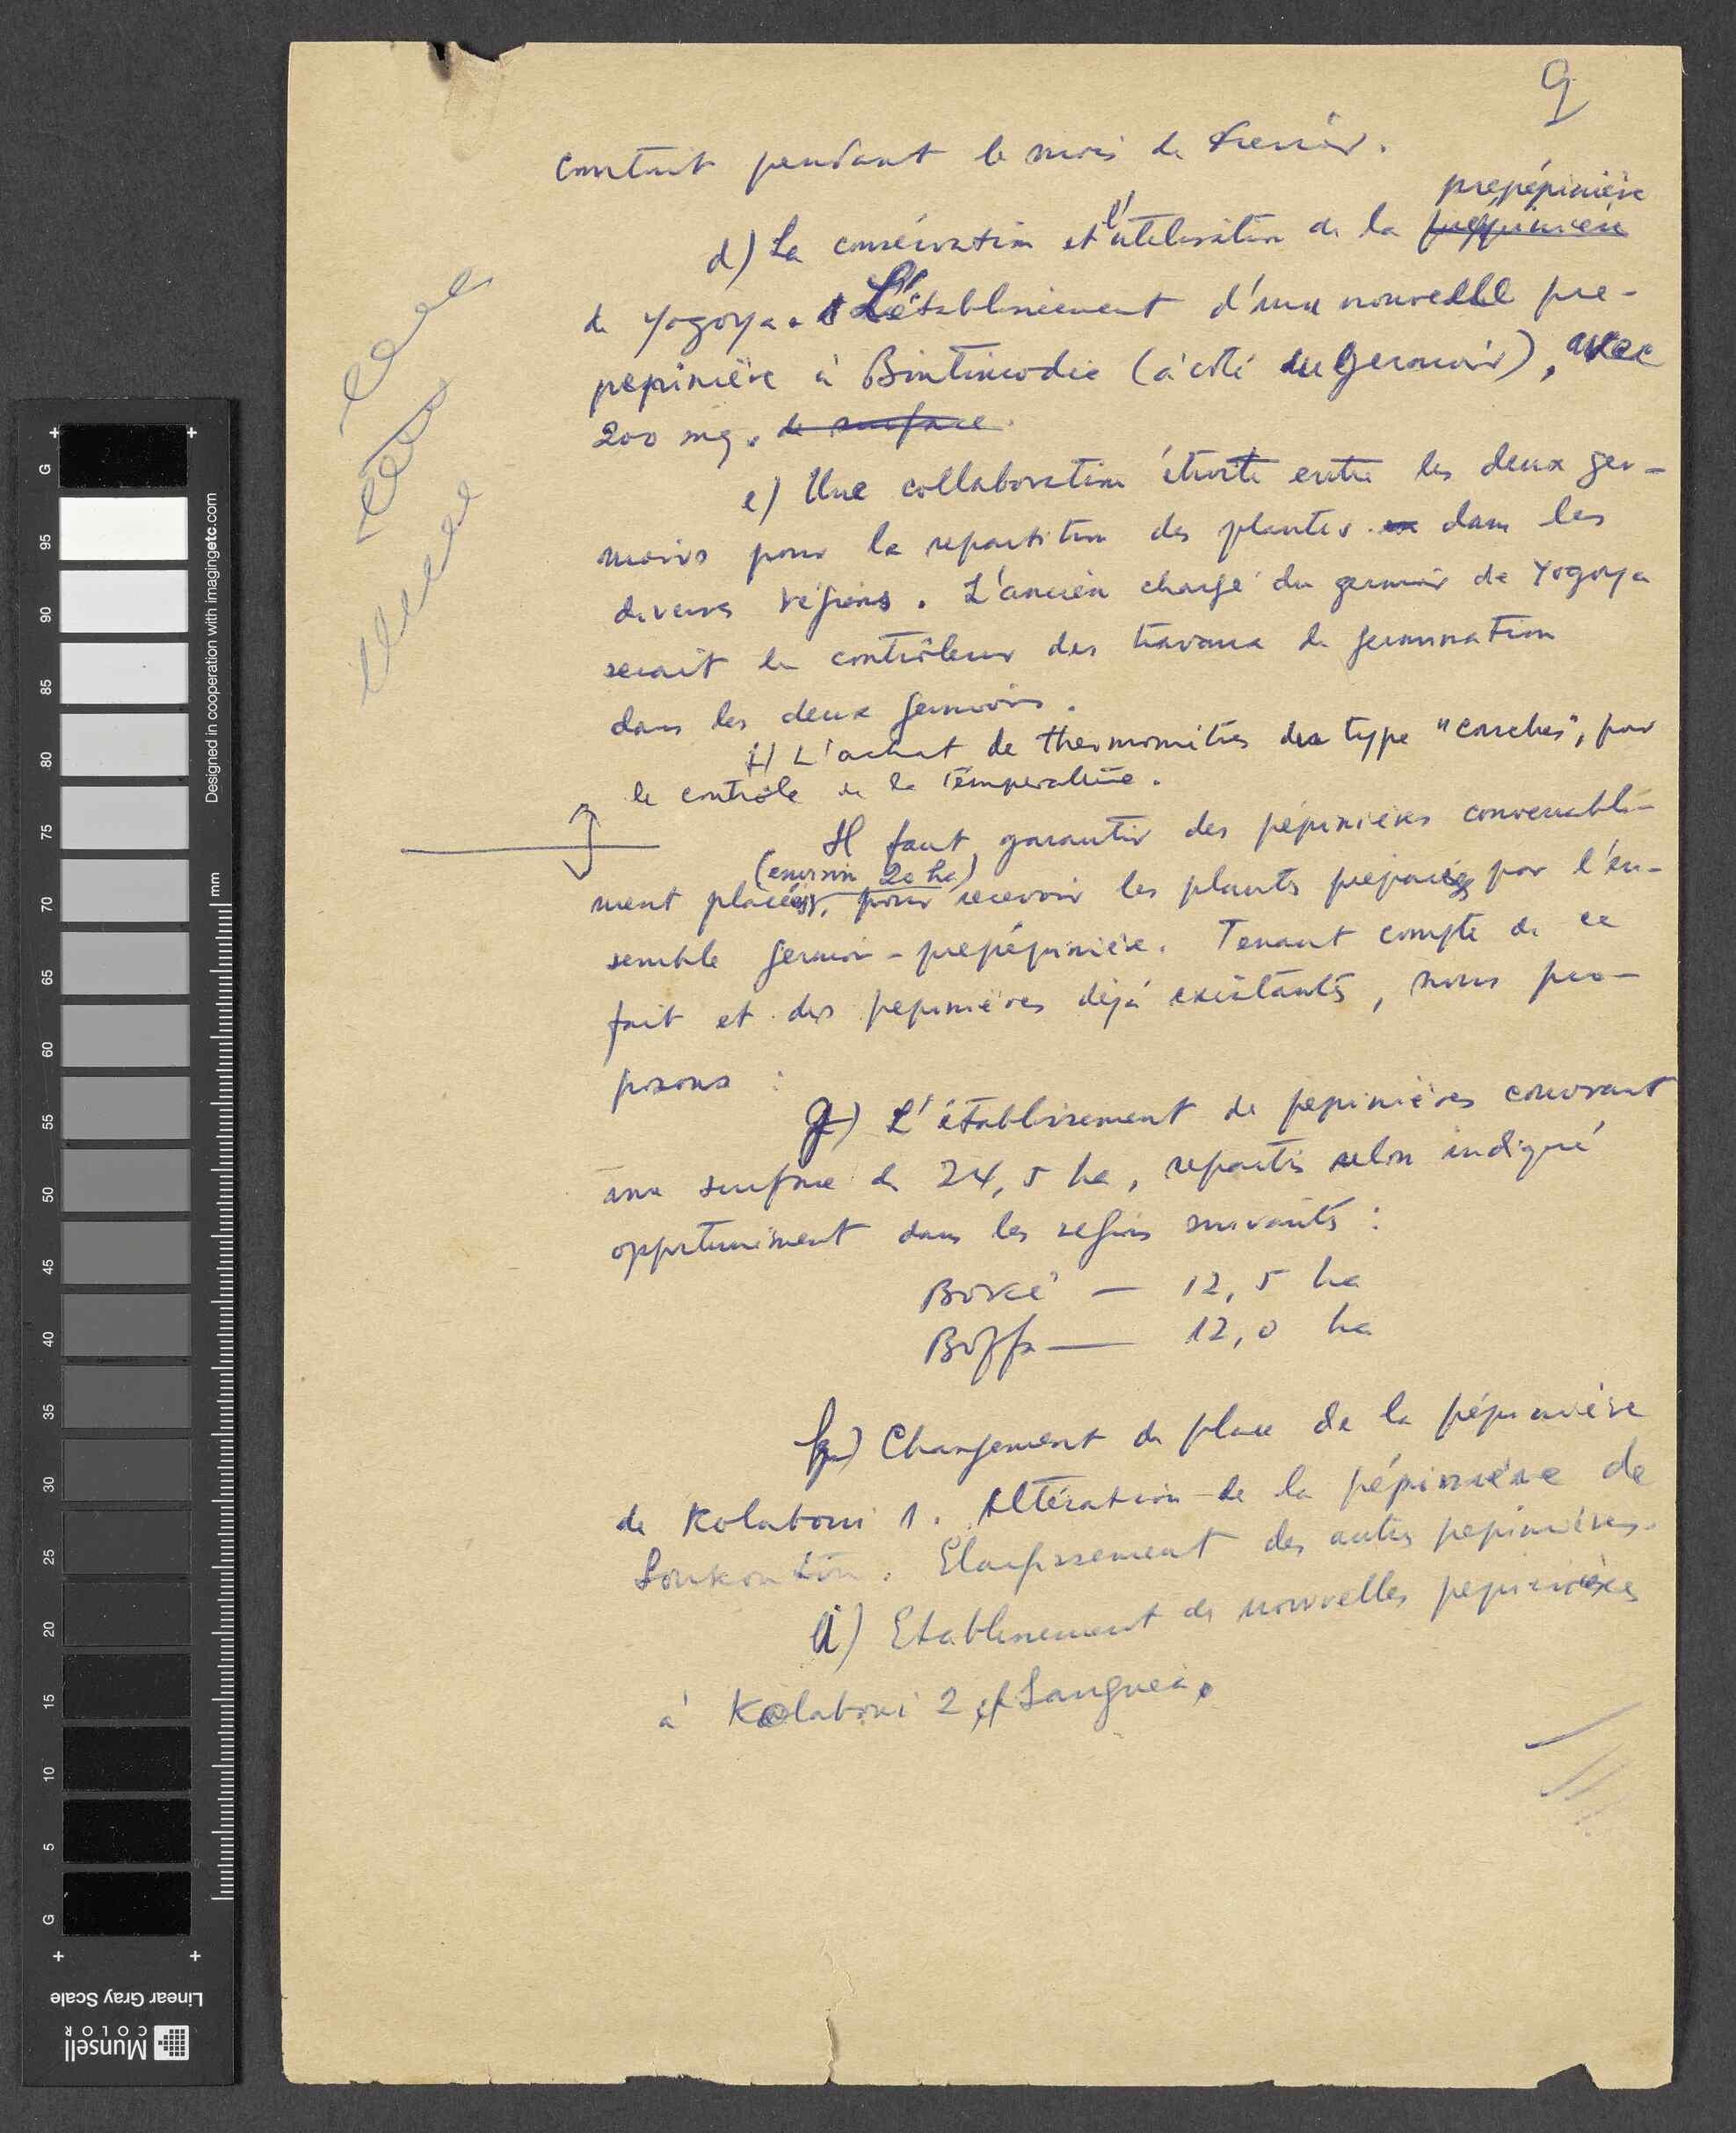 9
construit pendant le mois de fevrier.
prepépinière
d) La conservation et l'utilisation de la prepépinière
de Yogoya. L'établissement d'une nouvelle pre-
pepinière à Bintimodie (à côté du germoir), avec
200 mq. de surface
e) Une collaboration étroite entre les deux ger-
moirs pour la repartition des plantes dans les
diverses régions. L'ancien chargé du germoir de Yogoya
serait le contrôleur des travaux de germination
dans les deux germoirs.
f) L'achat de thermomètres du type "couches", pour
le contrôle de la température.
Il faut garantir des pépinières convenable-
(environ 20 ha)
ment placées, pour recevoir les plants préparés par l'en-
semble germoir-prepépinière. Tenant compte de ce
fait et des pepinières déjà existantes, nous pro-
posons :
g) L'établissement de pepinières couvrant
une surface de 24,5 ha, repartis selon indiqué
opportunément dans les regions suivantes :
Boké — 12,5 ha
Boffa — 12,0 ha
h) Changement de place de la pépinière
de Kolaboui 1. Altération de la pépinière de
Elargissement des autres pepinières.
i) Etablissement de nouvelles pepinières
à Kolaboui 2 et Sangueà.
G
95
90
85
80
75
70
65
60
55
50
45
40
35
30
25
20
15
10
5
G
mm
Designed in cooperation with imagingetc.com
Linear Gray Scale
Munsell
COLOR